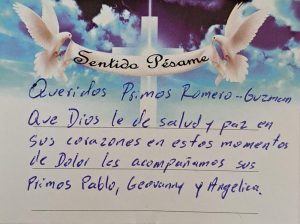 Sentido Pésame
Queridos Primos Romero-Guzman
Que Dios le de salud y paz en
sus corazones en estos momentos
de Dolor les acompañamos sus
Primos Pablo, Geovanny y Angelica.